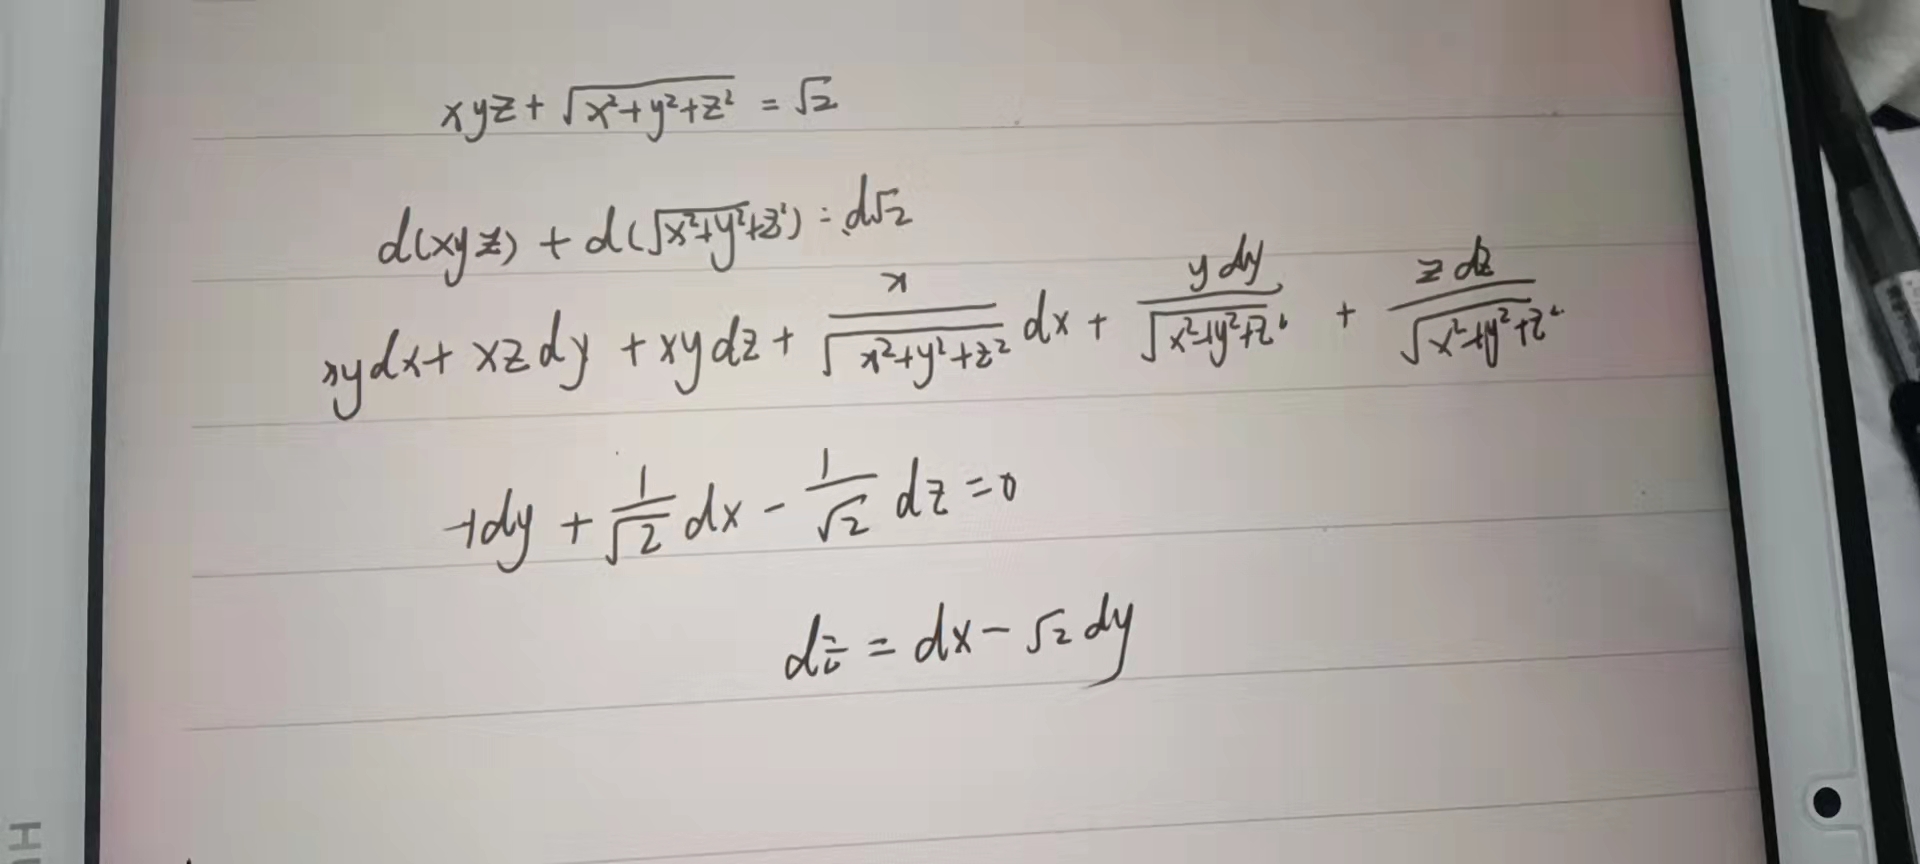 xyz + √(x²+y²+z²) = √2
d(xyz) + d(√(x²+y²+z²)) = d√2
xydx + xzdy + xydz + x/√(x²+y²+z²) dx + ydy/√(x²+y²+z²) + zdz/√(x²+y²+z²)
-1dy + 1/√2 dx - 1/√2 dz = 0
dz = dx - √2 dy
H